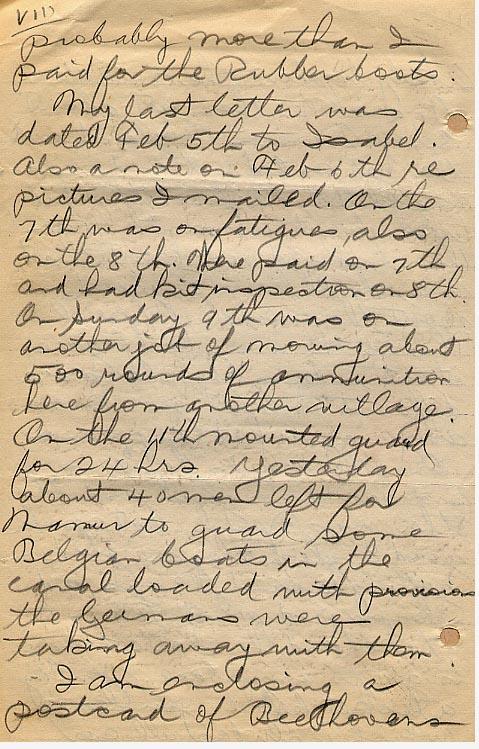 VIII
probably more than I
paid for the Rubber boots.
My last letter was
dated Feb 5th to Isabel.
Also a note on Feb 6th re
pictures I mailed. On the
7th was on fatigues, also
on the 8th. Were paid on 7th
and had kit inspection on 8th.
On Sunday 9th was on
another job of moving about
500 rounds of ammunition
here from another village.
On the 11th mounted guard
for 24 hrs. Yesterday
about 40 men left for
Namur to guard some
Belgian boats in the
canal loaded with provisions
the Germans were
taking away with them.
I am enclosing a
postcard of Beethovens